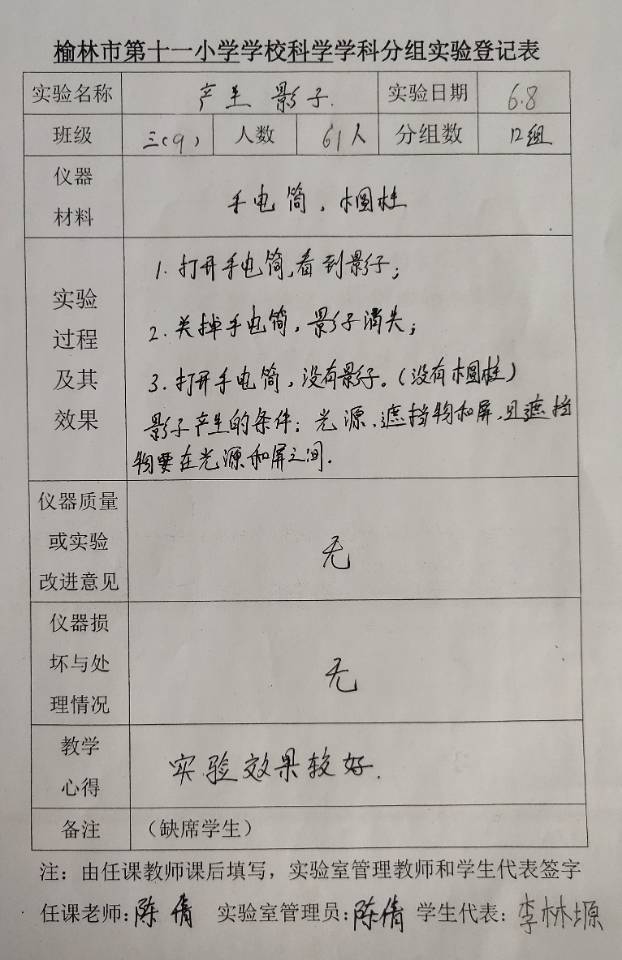 榆林市第十一小学学校科学学科分组实验登记表
实验名称 产生影子. 实验日期 6.8
班级 三(9) 人数 61人 分组数 12组
仪器
材料
手电筒、椭圆柱
1.打开手电筒,看到影子;
实验
过程
及其
效果
2.关掉手电筒,影子消失;
3.打开手电筒,没有影子。(没有椭圆柱)
影子产生的条件:光源、遮挡物和屏,且遮挡
物要在光源和屏之间.
仪器质量
或实验
改进意见
无
仪器损
坏与处
理情况
无
教学
心得
实验效果较好.
备注 (缺席学生)
注:由任课教师课后填写,实验室管理教师和学生代表签字
任课老师:陈倩 实验室管理员:陈倩 学生代表:李林塬